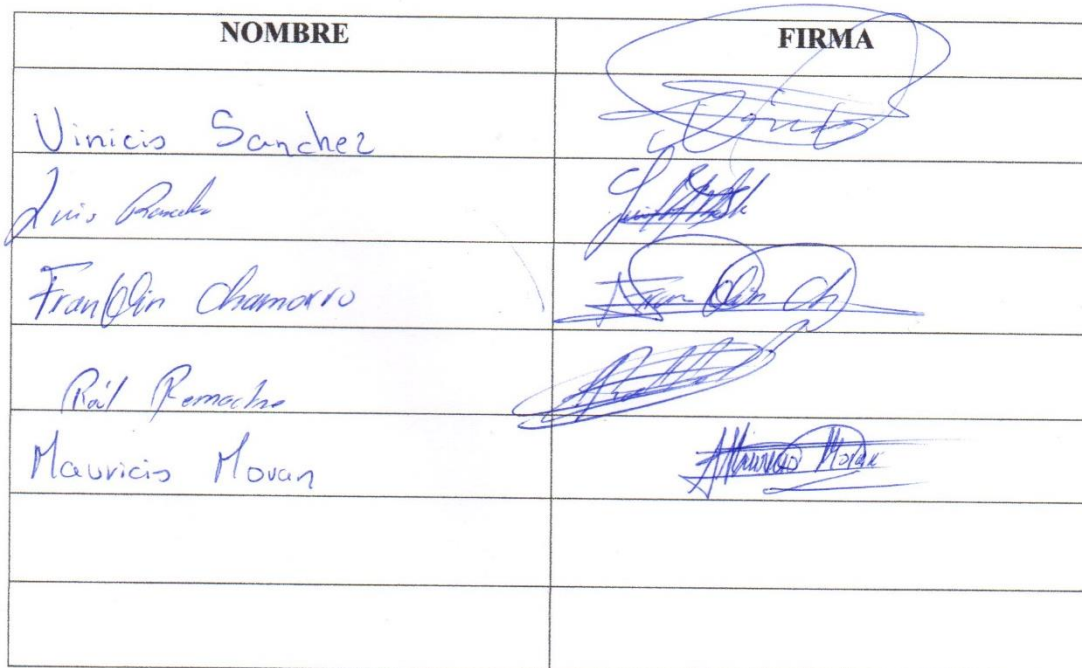 NOMBRE FIRMA
Vinicio Sanchez
Luis
Franklin Chamorro Franklin Ch
Raúl Remache
Mauricio Moran Mauricio Moran